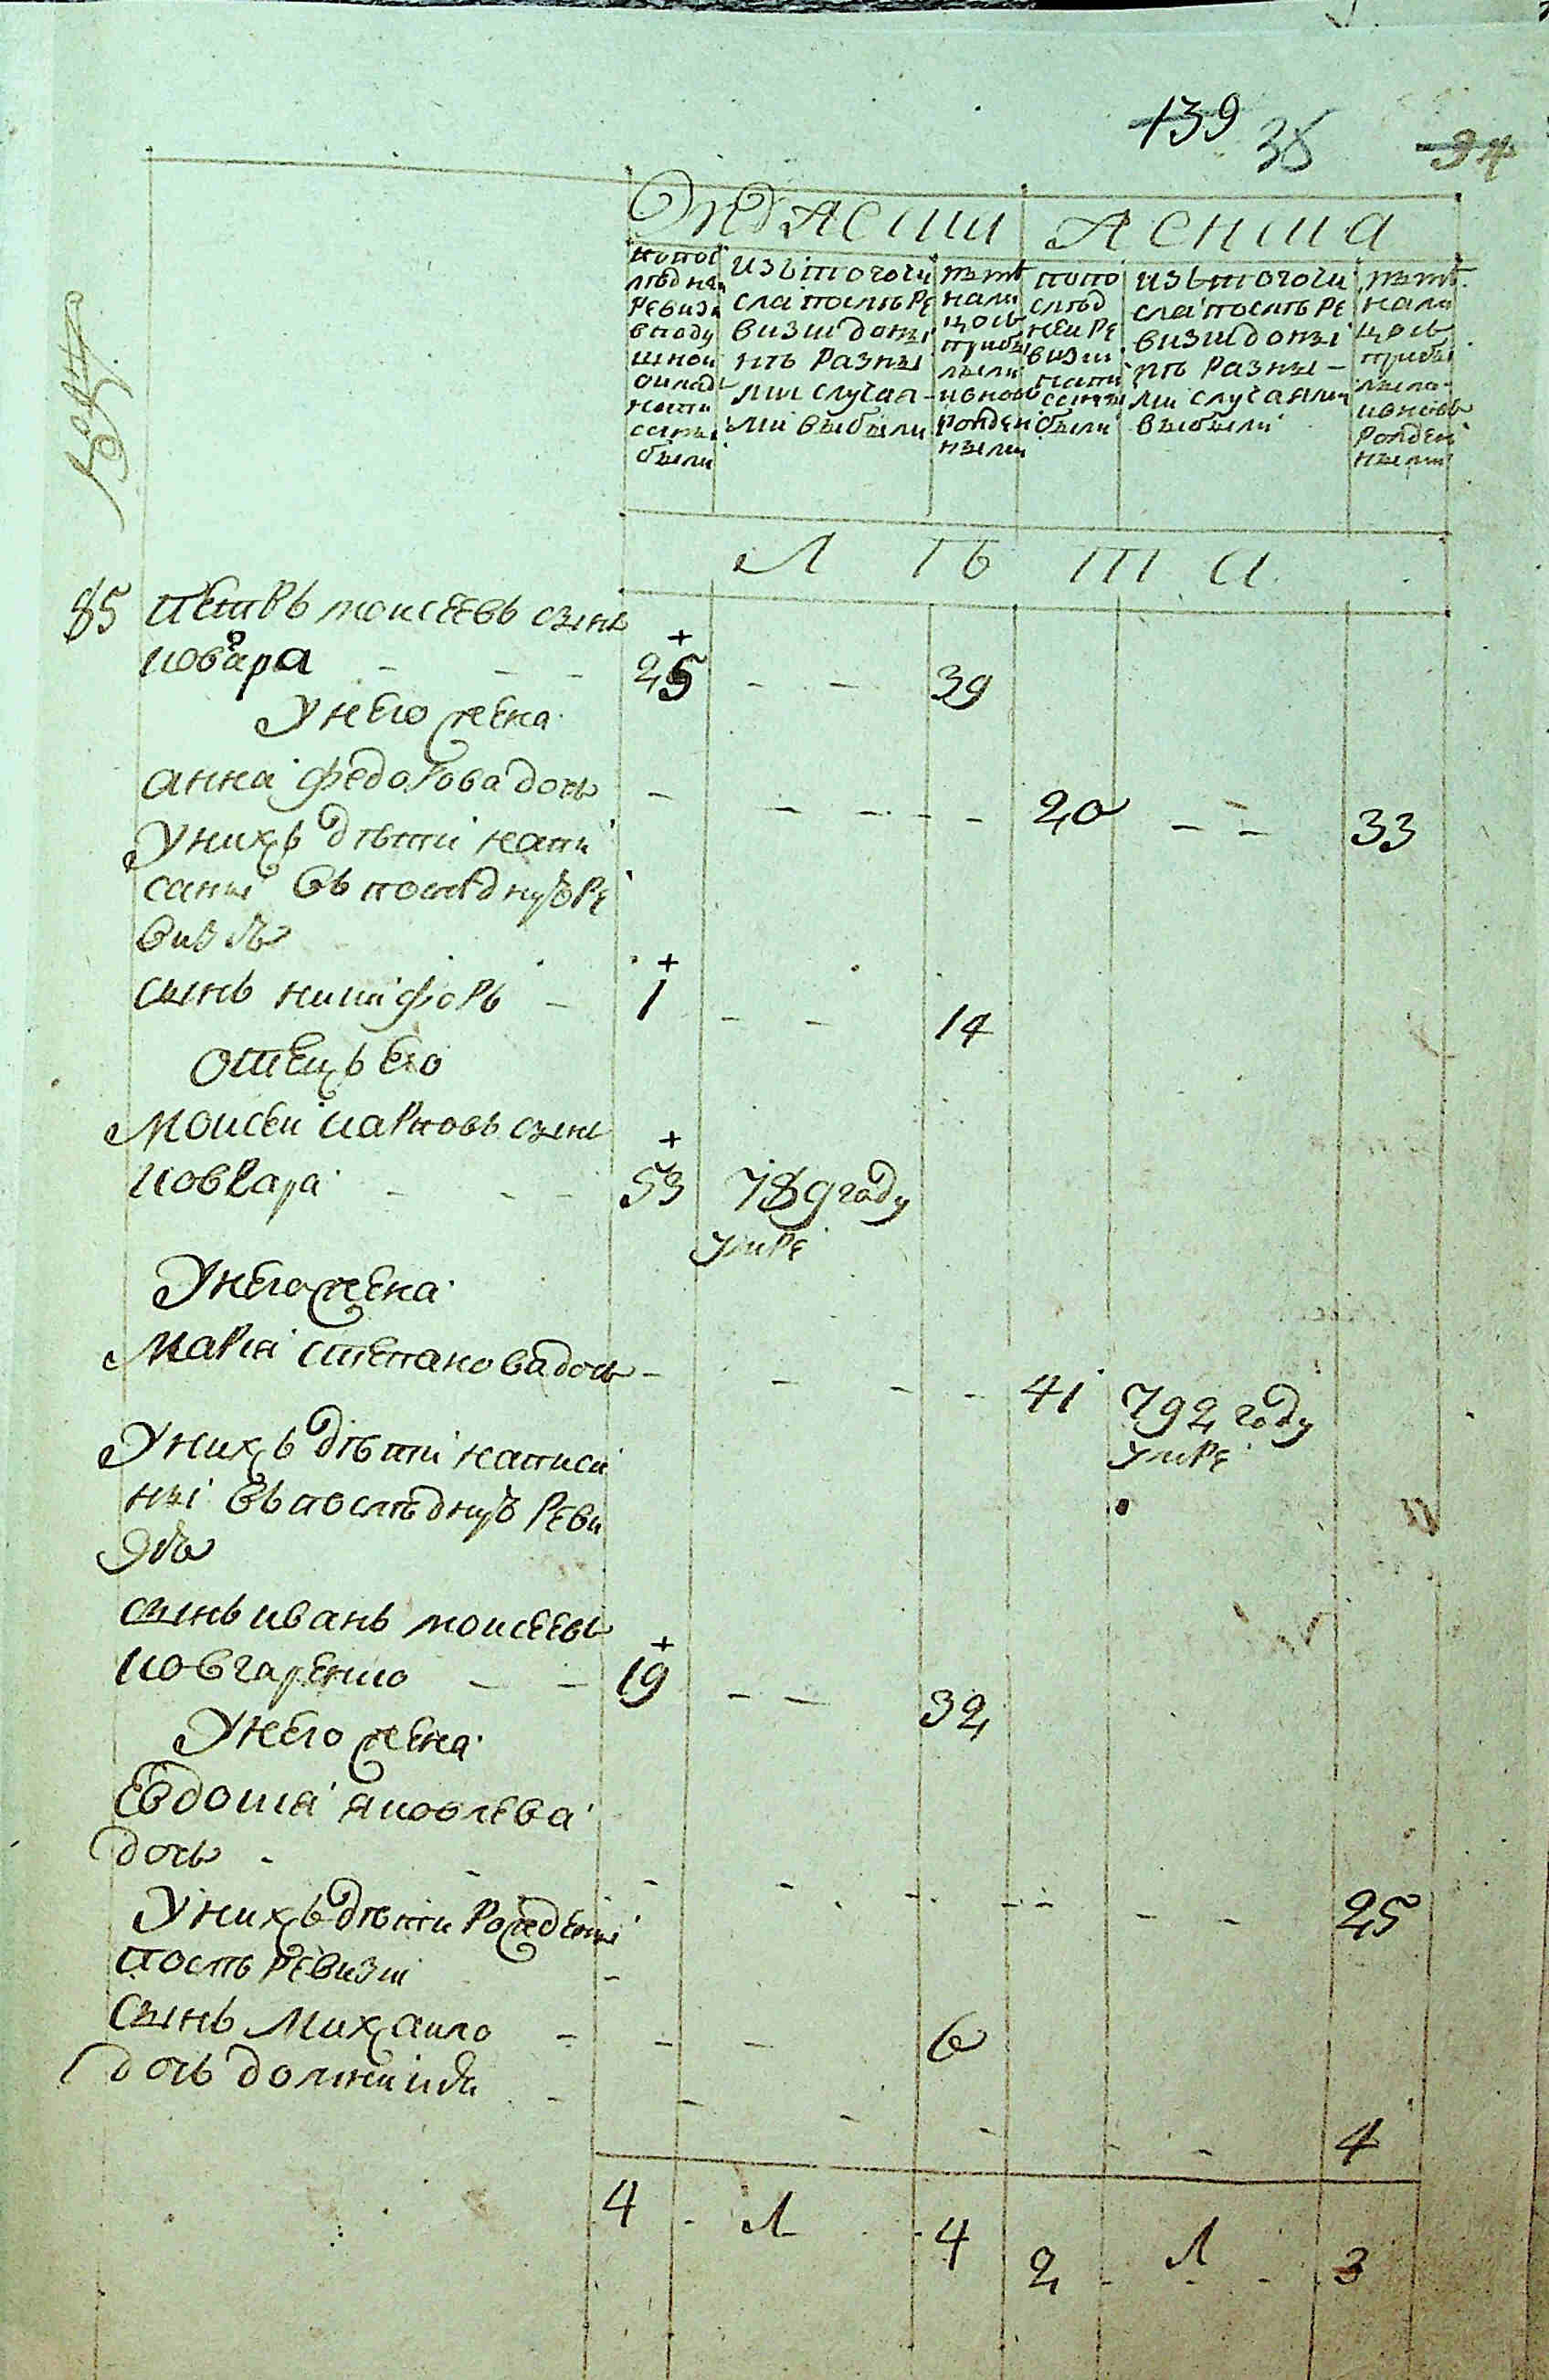 139 38 94
Мужески Женска
попос
ледней
Ревизи
вподу
шной
окладъ
напи
саны
были
изътогочи
сла послѣ Ре
визии доны
нѣ разны
ми случая
ми выбыли
нынѣ
нали
цось
прибы
лыми
ивново
рожден
ными
попо
слѣд
ней Ре
визии
напи
саны
были
изътогочи
сла послѣ Ре
визии доны
нѣ разны
ми случаями
выбыли
нынѣ
нали
цось
прибы
лыми
ивновь
рожден
ными
Л Ѣ Т А
85 Петръ моисеевъ сынъ
25 39
Унего жена
анна федорова дочь 20 33
Унихъ дѣти напи
саны въ последную Ре
визию
сынъ никифоръ 1 14
отецъ его
Моисей карповъ сынъ
53 789 году
умре
Унего жена
Мария степанова дочь 41 792 году
умре
Унихъ дѣти написа
ны въ послѣдную Реви
зию
сынъ иванъ моисеевъ
19 32
Унего жена
Евдокия яковлева
дочь 25
Унихъ дѣти рожденны
послѣ Ревизии
сынъ Михаило 6
дочь домникия 4
4 1 4 2 1 3